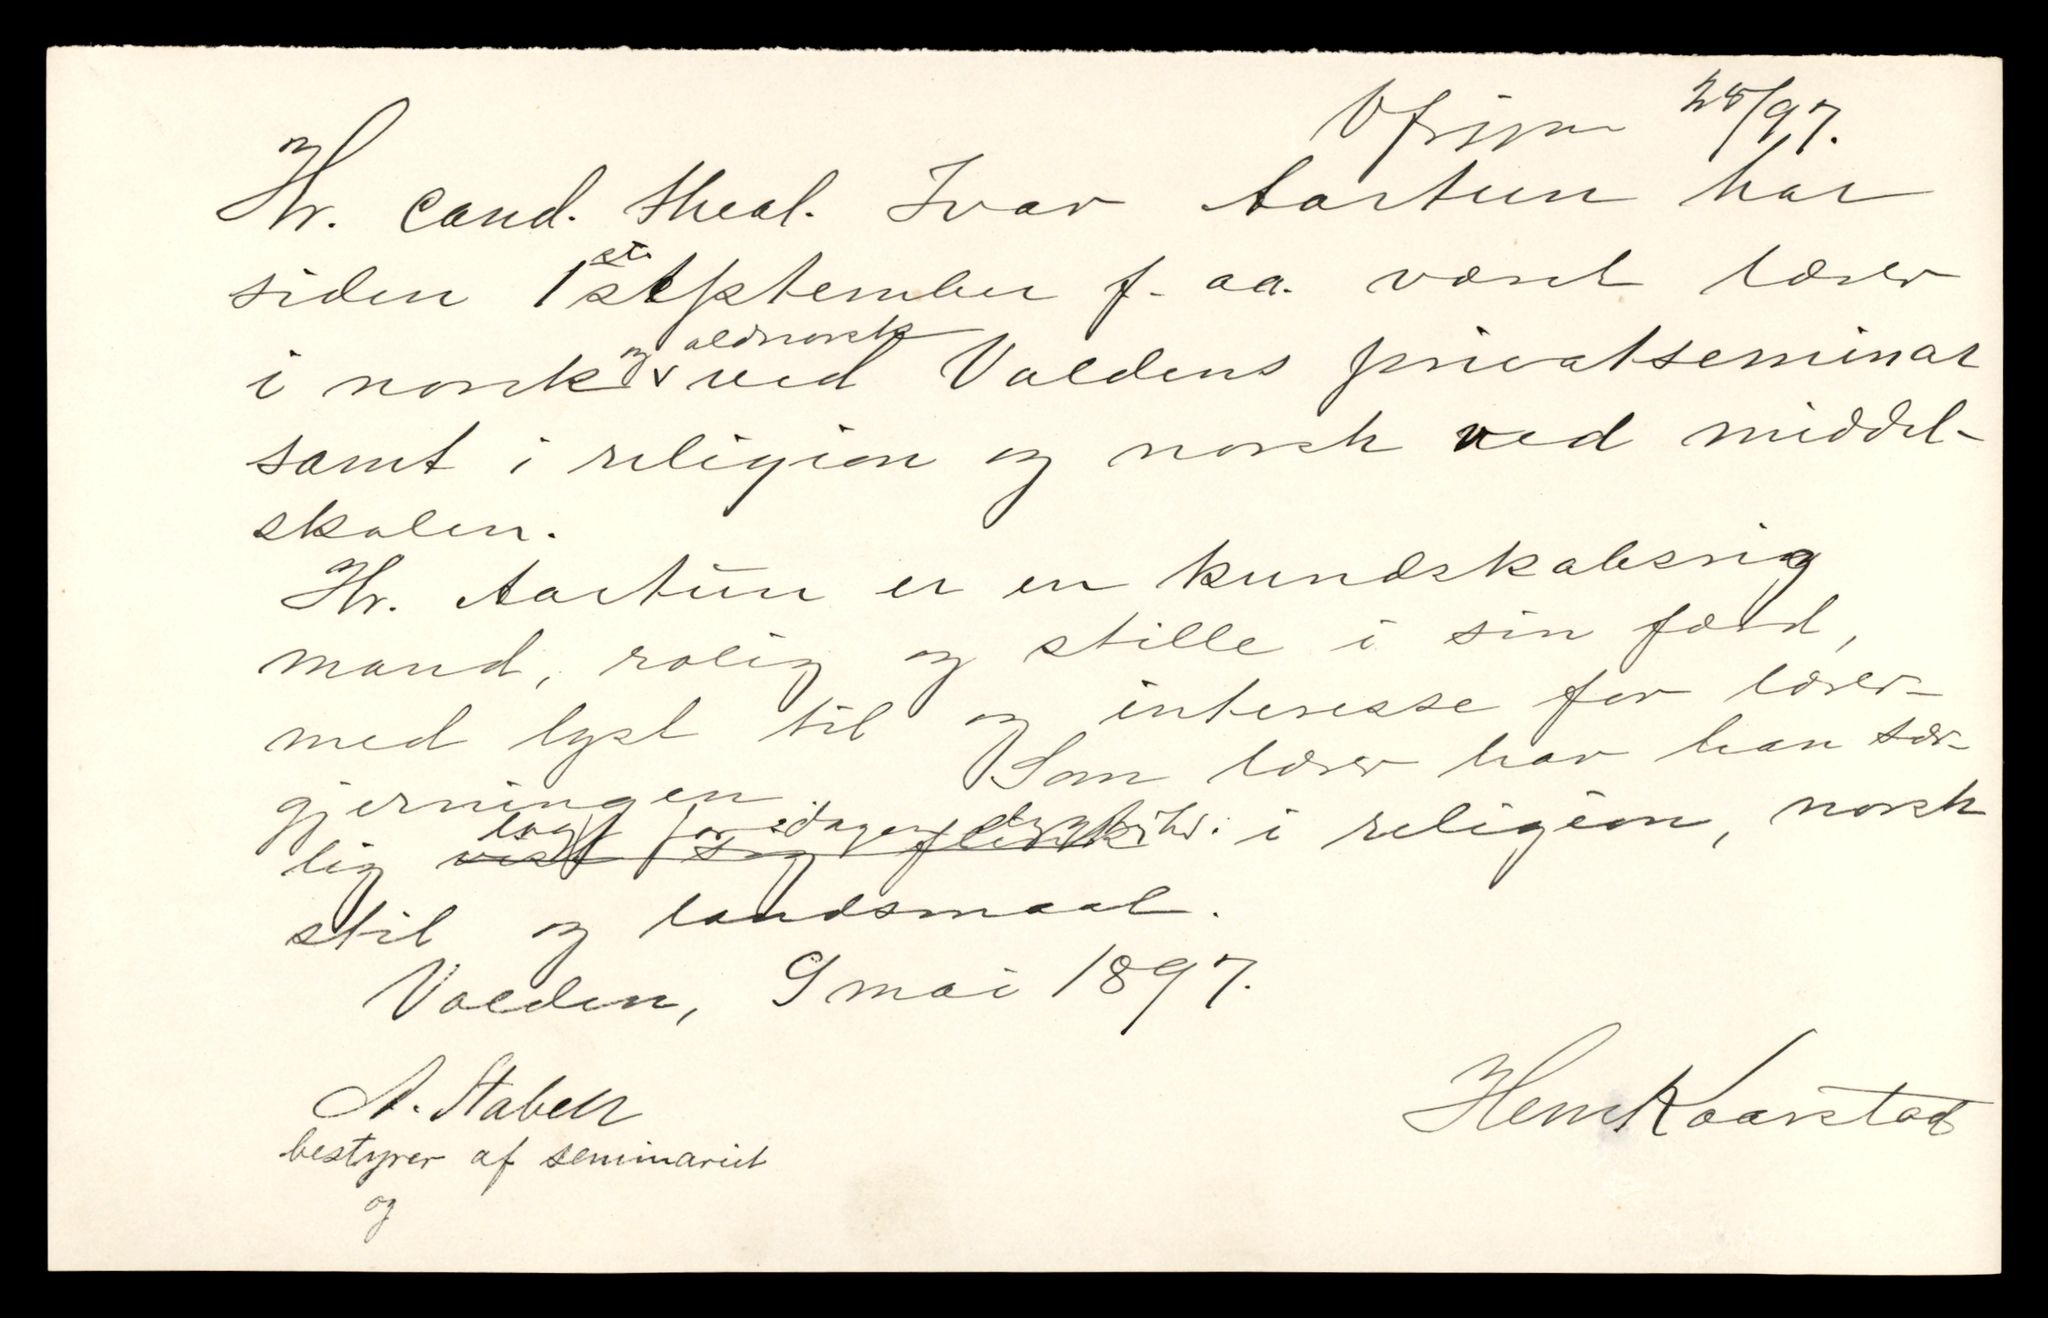 28/97.
Hr. cand. theol. Ivar Aartun har
siden 1ste september f. aa. været lærer
i norsk og oldnorsk ved Voldens privatseminar
samt i religion og norsk ved middel-
skolen.
Hr. Aartun er en kundskabsrig
mand, rolig og stille i sin færd,
med lyst til og interesse for lærer-
gjerningen. Som lærer har han sær-
lig lagt for dagen dygtighed i religion, norsk
stil og landsmaal.
Volden, 9 mai 1897.
A. Stabell
bestyrer af seminariet
og
Henr Kaarstad